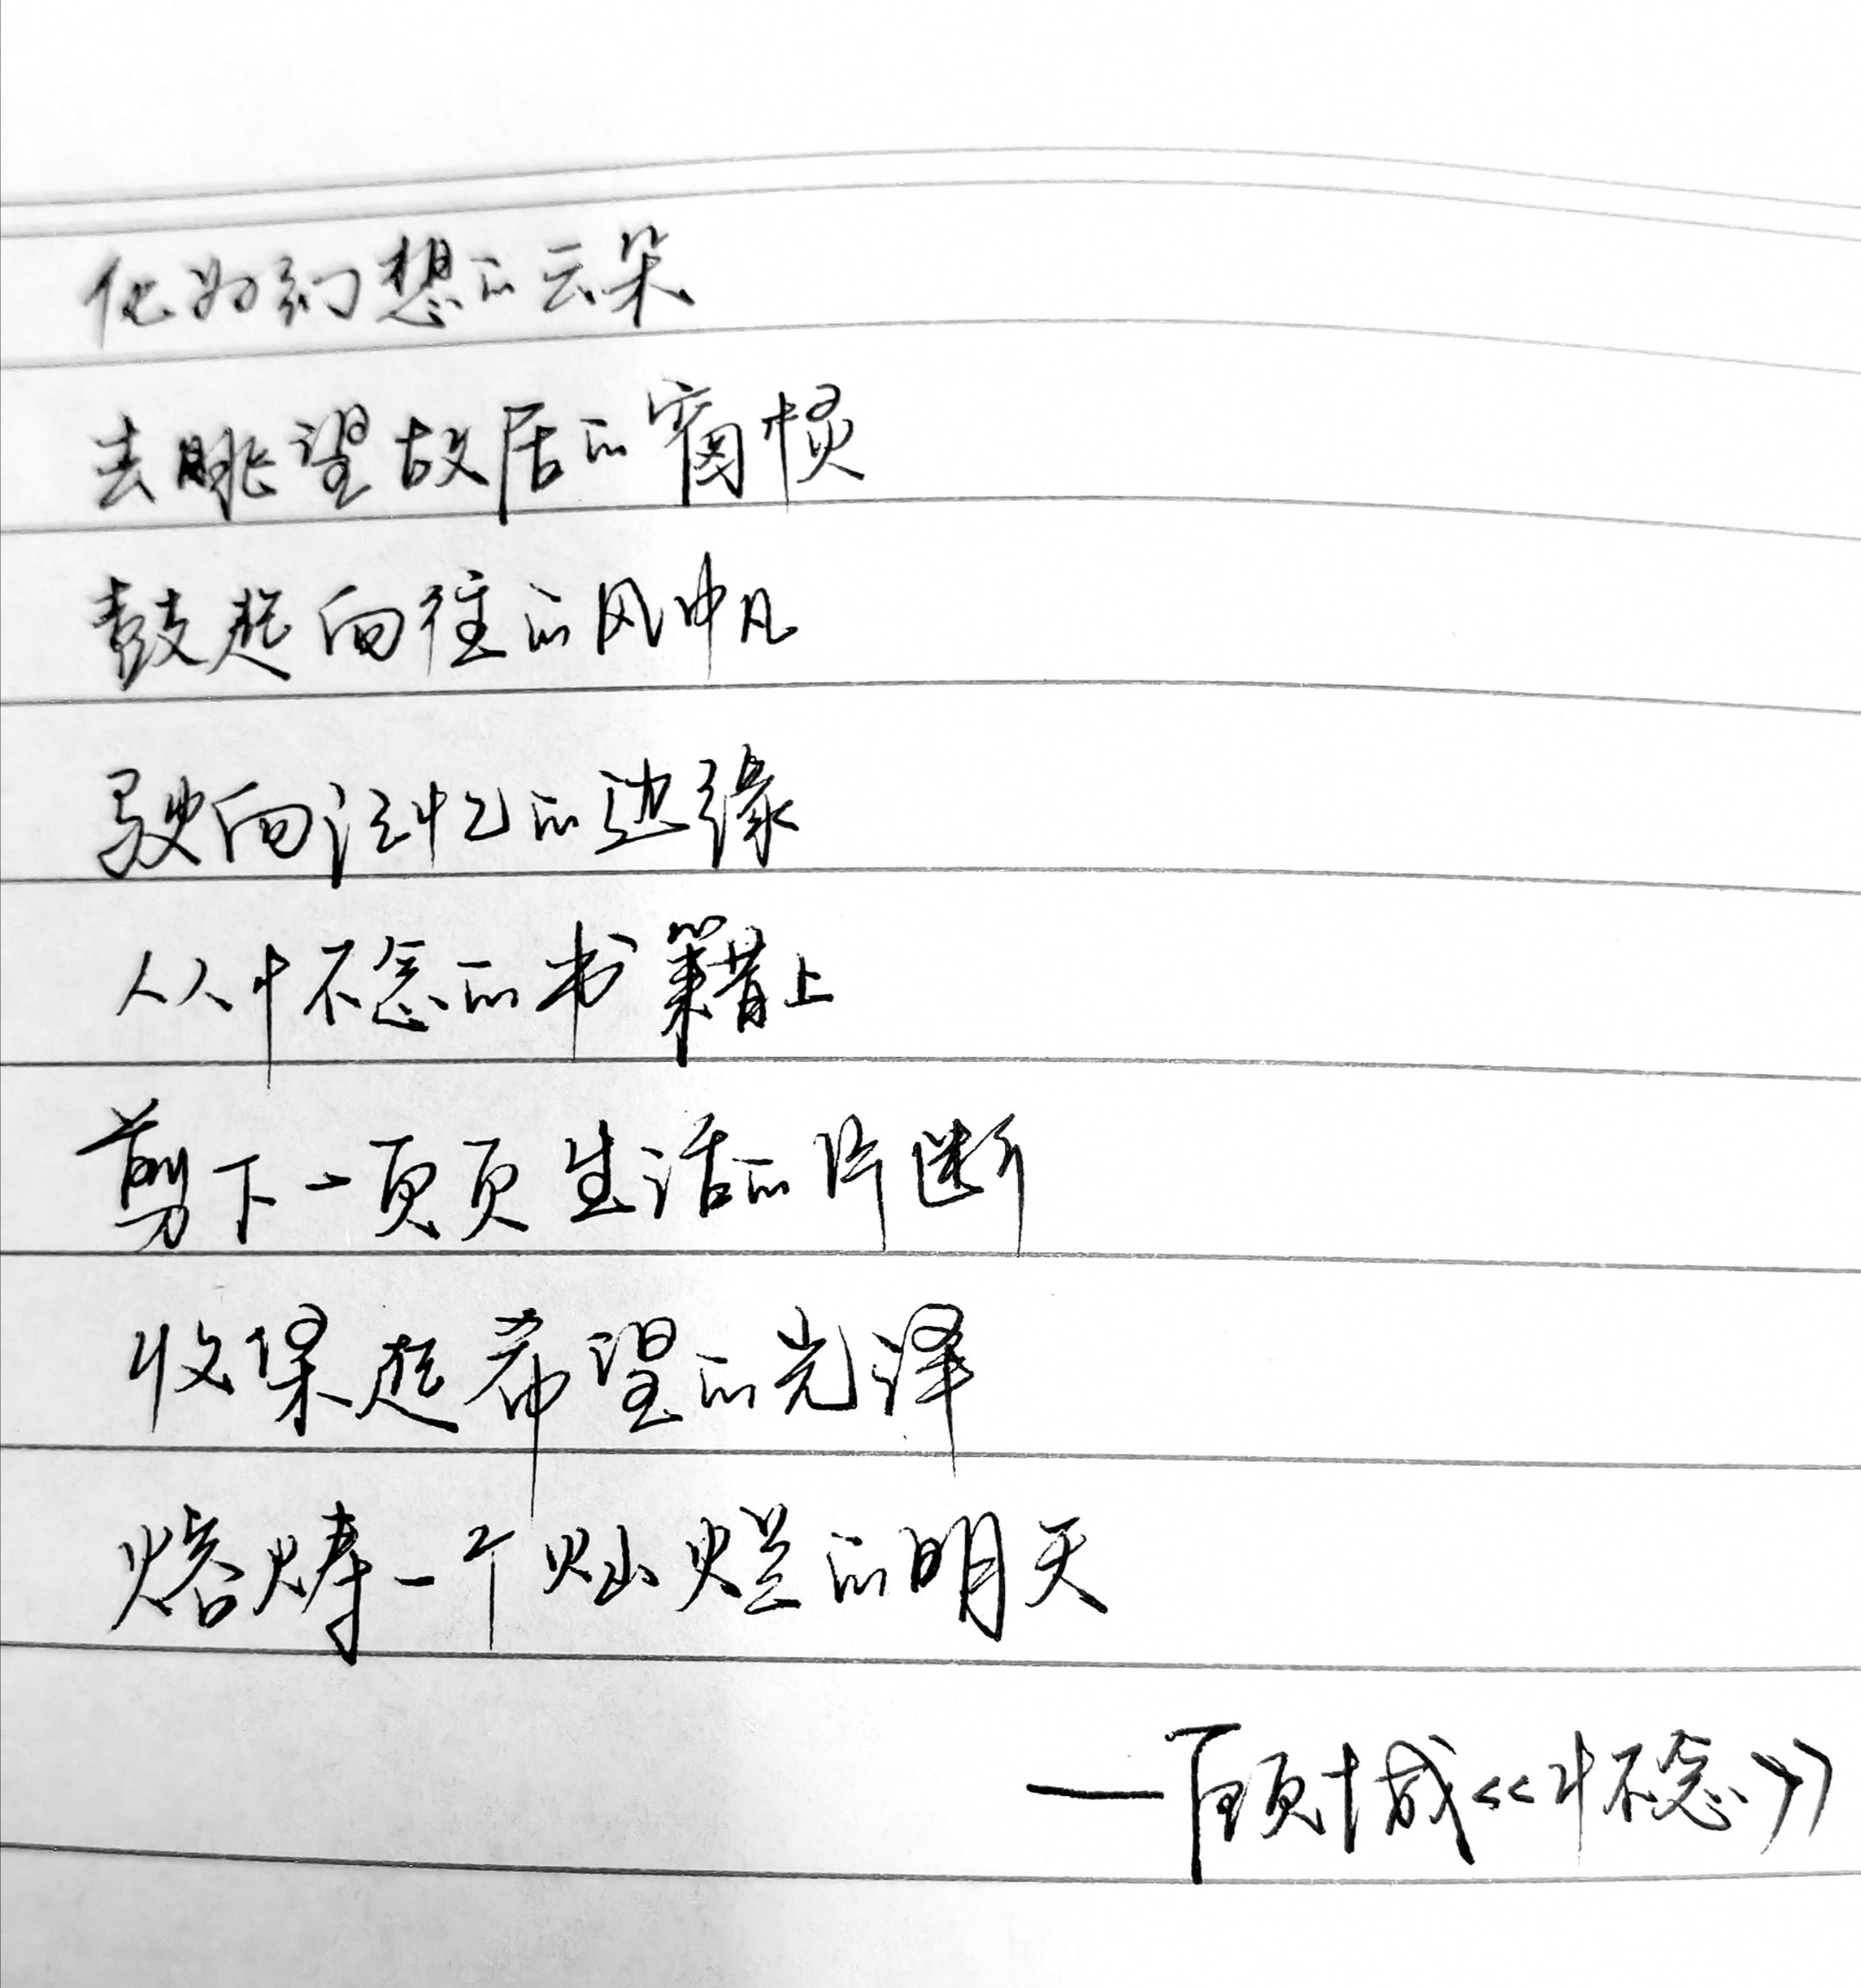 化为幻想的云朵
去眺望故居的窗棂
鼓起向往的风帆
驶向记忆的边缘
从怀念的书籍上
剪下一页页生活的片断
收集起希望的光泽
熔铸一个灿烂的明天
——顾城《怀念》